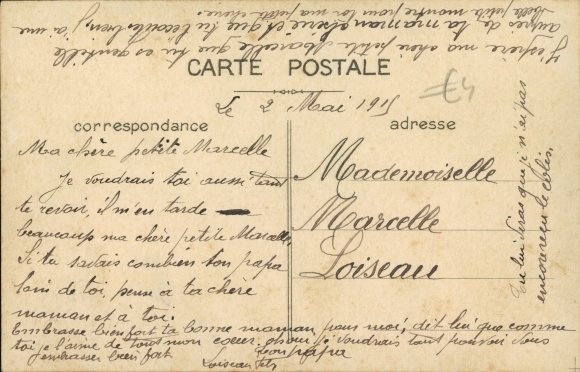 CARTE POSTALE
€4
Le 2 Mai 1915
correspondance
adresse
Ma chère petite Marcelle
Je voudrais toi aussi tant
te revoir, il m'en tarde
beaucoup ma chère petite Marcelle
Si tu savais combien ton papa
loin de toi, pense à ta chère
maman et à toi.
Embrasse bien fort ta bonne maman pour moi, dit lui que comme
toi je l'aime de tout mon coeur. je voudrais tant pouvoir vous
embrasser bien fort
Ton papa
Loiseau fils
Mademoiselle
Marcelle
Loiseau
Tu lui diras que je n'ai pas
encore reçu le colis.
J'espère ma chère petite Marcelle que tu es gentille
auprès de ta maman chérie et que tu travailles bien, j'ai une
belle petite montre pour toi ma petite chérie.